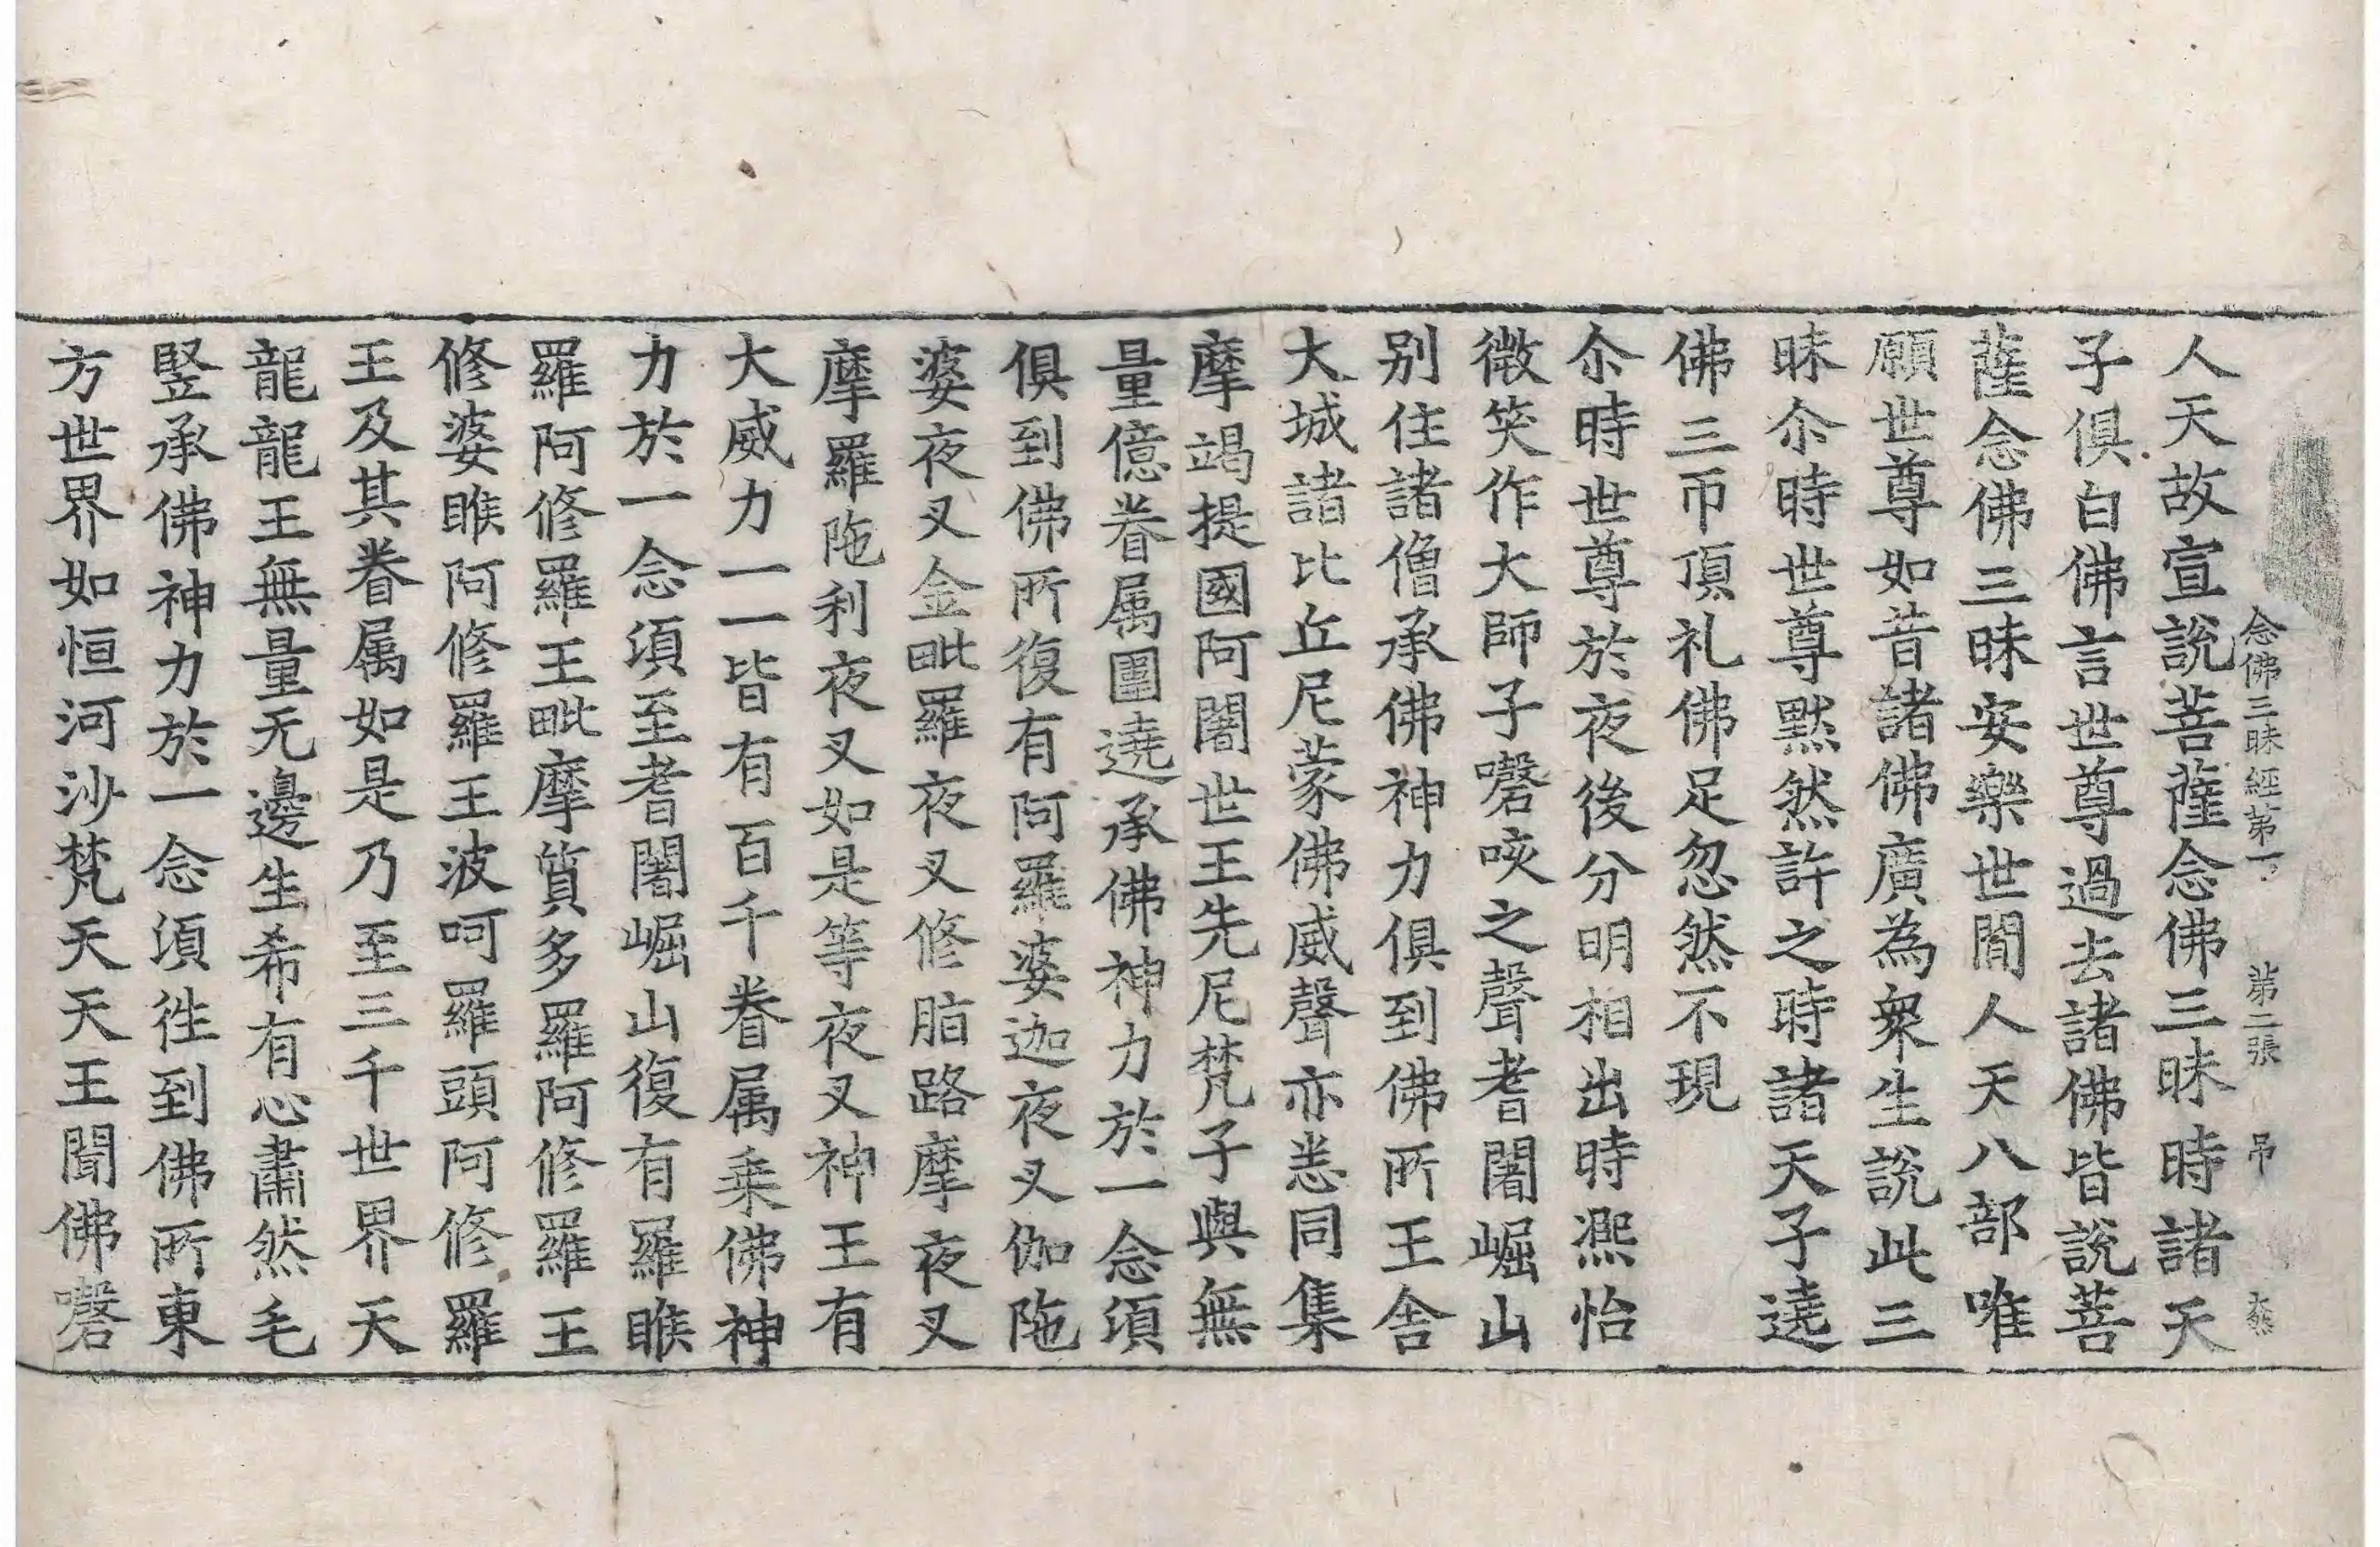 念佛三昧經第一　第二張　吊
人天故宣說菩薩念佛三昧時諸天
子俱白佛言世尊過去諸佛皆說菩
薩念佛三昧安樂世間人天八部唯
願世尊如昔諸佛廣為衆生說此三
昧尒時世尊黙然許之時諸天子遶
佛三帀頂礼佛足忽然不現
尒時世尊於夜後分明相出時凞怡
微笑作大師子謦咳之聲耆闍崛山
别住諸僧承佛神力俱到佛所王舎
大城諸比丘尼蒙佛威聲亦悉同集
摩竭提國阿闍世王先尼梵子與無
量億眷属圍遶承佛神力於一念湏
俱到佛所復有阿羅婆迦夜叉伽陁
婆夜叉金毗羅夜叉修脂路摩夜叉
摩羅陁利夜叉如是等夜叉神王有
大威力一一皆有百千眷属乗佛神
力於一念湏至耆闍崛山復有羅睺
羅阿修羅王毗摩質多羅阿修羅王
修婆睺阿修羅王波呵羅頭阿修羅
王及其眷属如是乃至三千世界天
龍龍王無量无邊生希有心肅然毛
竪承佛神力於一念湏徃到佛所東
方世界如恒河沙梵天天王聞佛謦